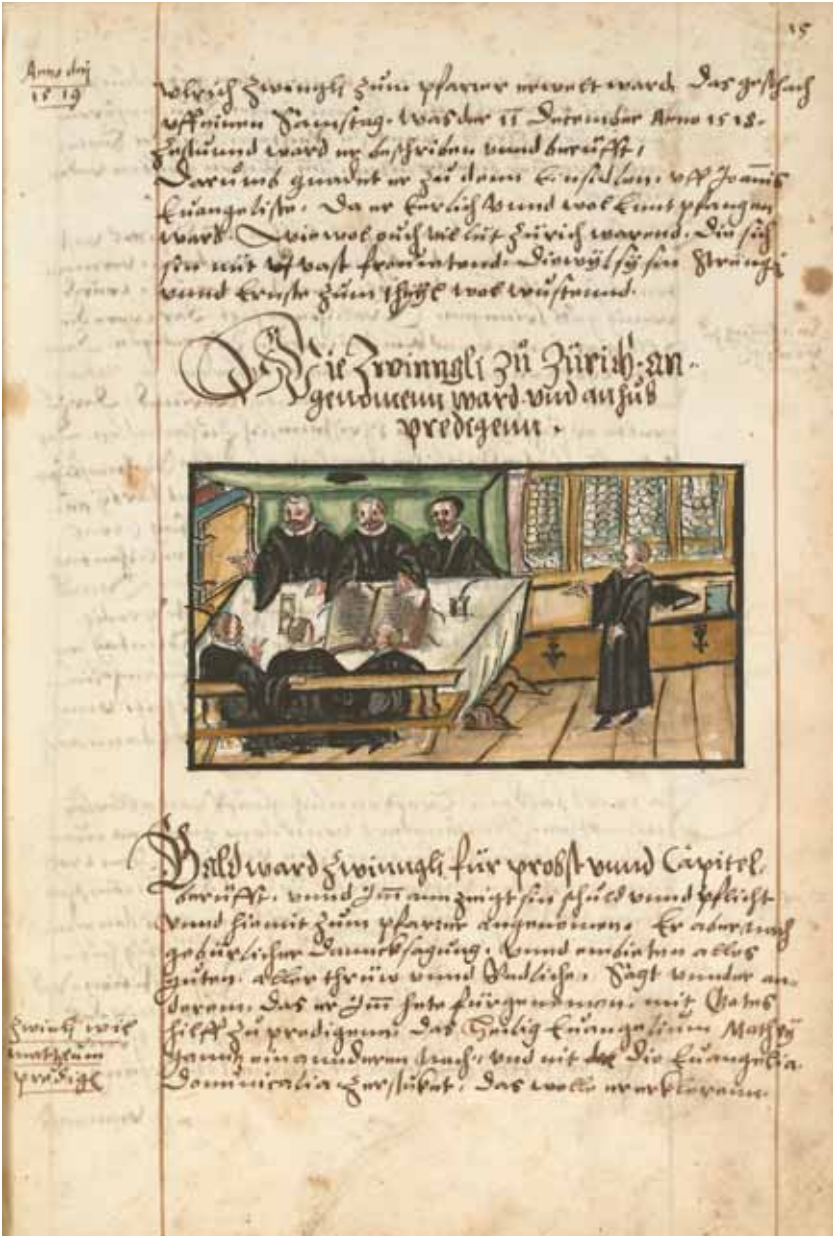 15
Anno dnj
1519
Vlrich Zwingli zum pfarrer erwelt ward. Das geschach
vff einen Samstag. was der 11 December Anno 1518.
Zestund ward er beschriben vnnd berüfft,
Darumb er zu denn Einsidlen. vff Joannis
Euangeliste. Da er Eerlich vnnd wol Empfangen
ward. Wie wol ouch vil lüt Zürich warend. Die sich
sin nüt vast fröuwtend. Diewyl sy sin Strenge
vnnd Ernste zum theyl wol wustennd.
Wie Zwinngli zů Zürich. an-
genomenn ward vnd anhůb
predigenn.
Bald ward Zwinngli für probst vnnd Capitel.
berüfft. vnnd Imm annzeigt sin schuld vnnd pflicht
vnnd hiemit zum pfarrer angenomen. Er aber nach
gebürlicher Dancksagung. vnnd embieten alles
guten. aller thrüw vnnd Redliche. Sagt vnnder an-
derem. Das er Imm hete fürgenomen. mit Gotes
hilff zu predigenn. Das Heilig Euangelium Mathey
gantz einannderen nach. vnd nit die Euangelia
Dominicalia zerstuket. Das wolle er erklerenn.
Zwinglj wil
mattheum
predigē